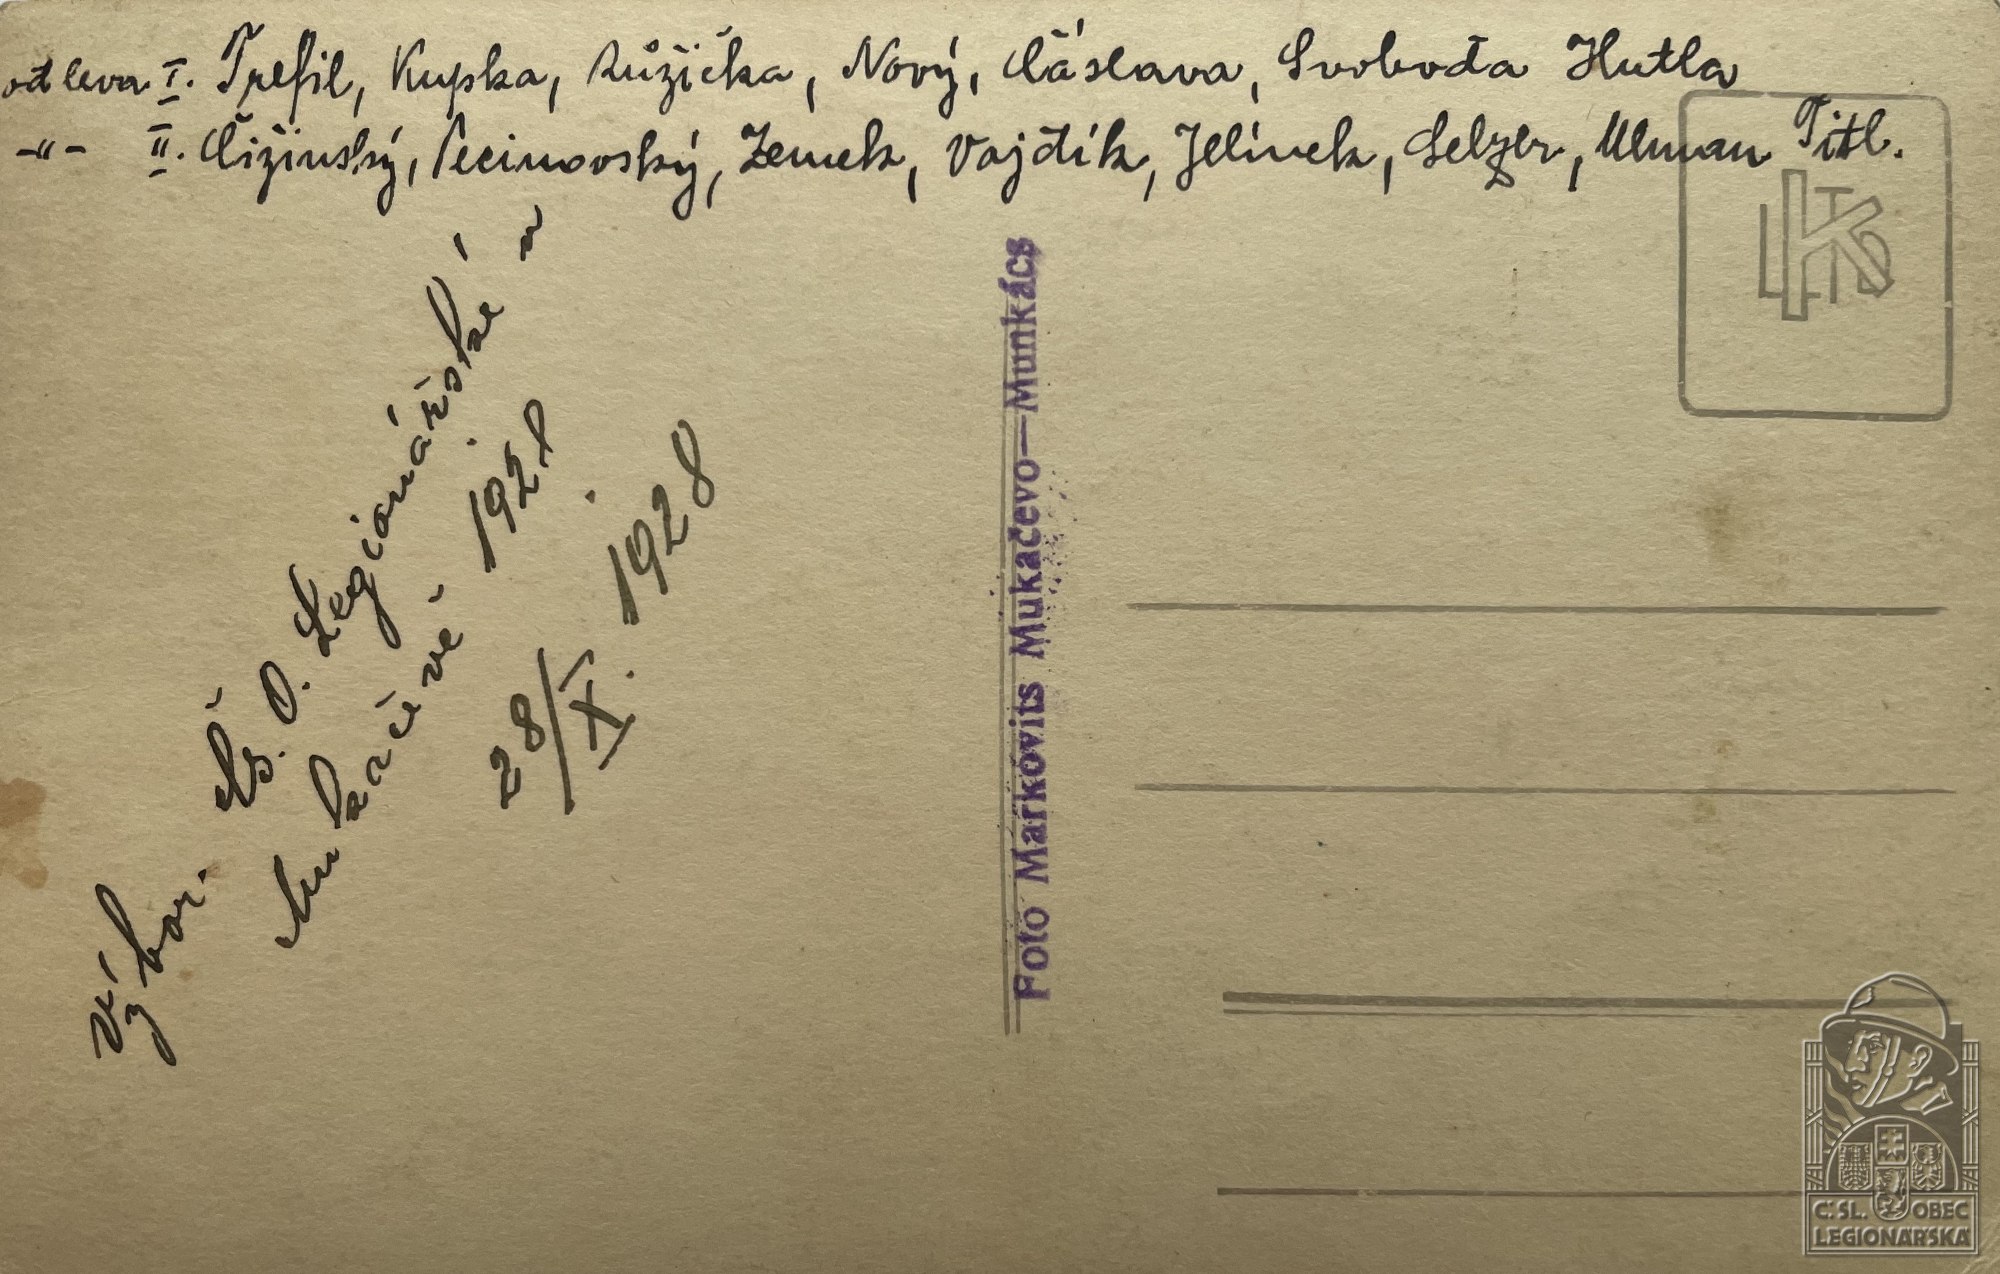 od leva I. Trefil, Kupka, Růžička, Nový, Čáslava, Svoboda Hutla
-"- II. Čižinský, Pecinovský, Zemek, Vojdík, Jelínek, Selzer, Ulman Titl.
Výbor. Čs. O. Legionářské v
Mukačevě 1928
28/X. 1928
Foto Markovits Mukačevo—Munkács
Č. SL. OBEC
LEGIONÁŘSKÁ